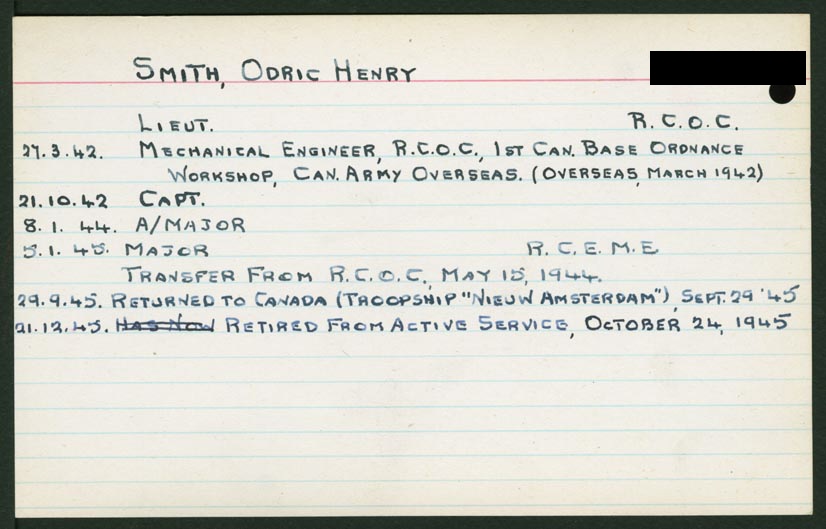 SMITH, ODRIC HENRY
LIEUT. R.C.O.C.
27.3.42. MECHANICAL ENGINEER, R.C.O.C., 1ST CAN. BASE ORDNANCE
WORKSHOP, CAN. ARMY OVERSEAS. (OVERSEAS, MARCH 1942)
21.10.42 CAPT.
8.1.44. A/MAJOR
5.1.45. MAJOR R.C.E.M.E
TRANSFER FROM R.C.O.C., MAY 15, 1944.
29.9.45. RETURNED TO CANADA (TROOPSHIP "NIEUW AMSTERDAM"), SEPT. 29 '45
21.12.45. HAS NOW RETIRED FROM ACTIVE SERVICE, OCTOBER 24, 1945